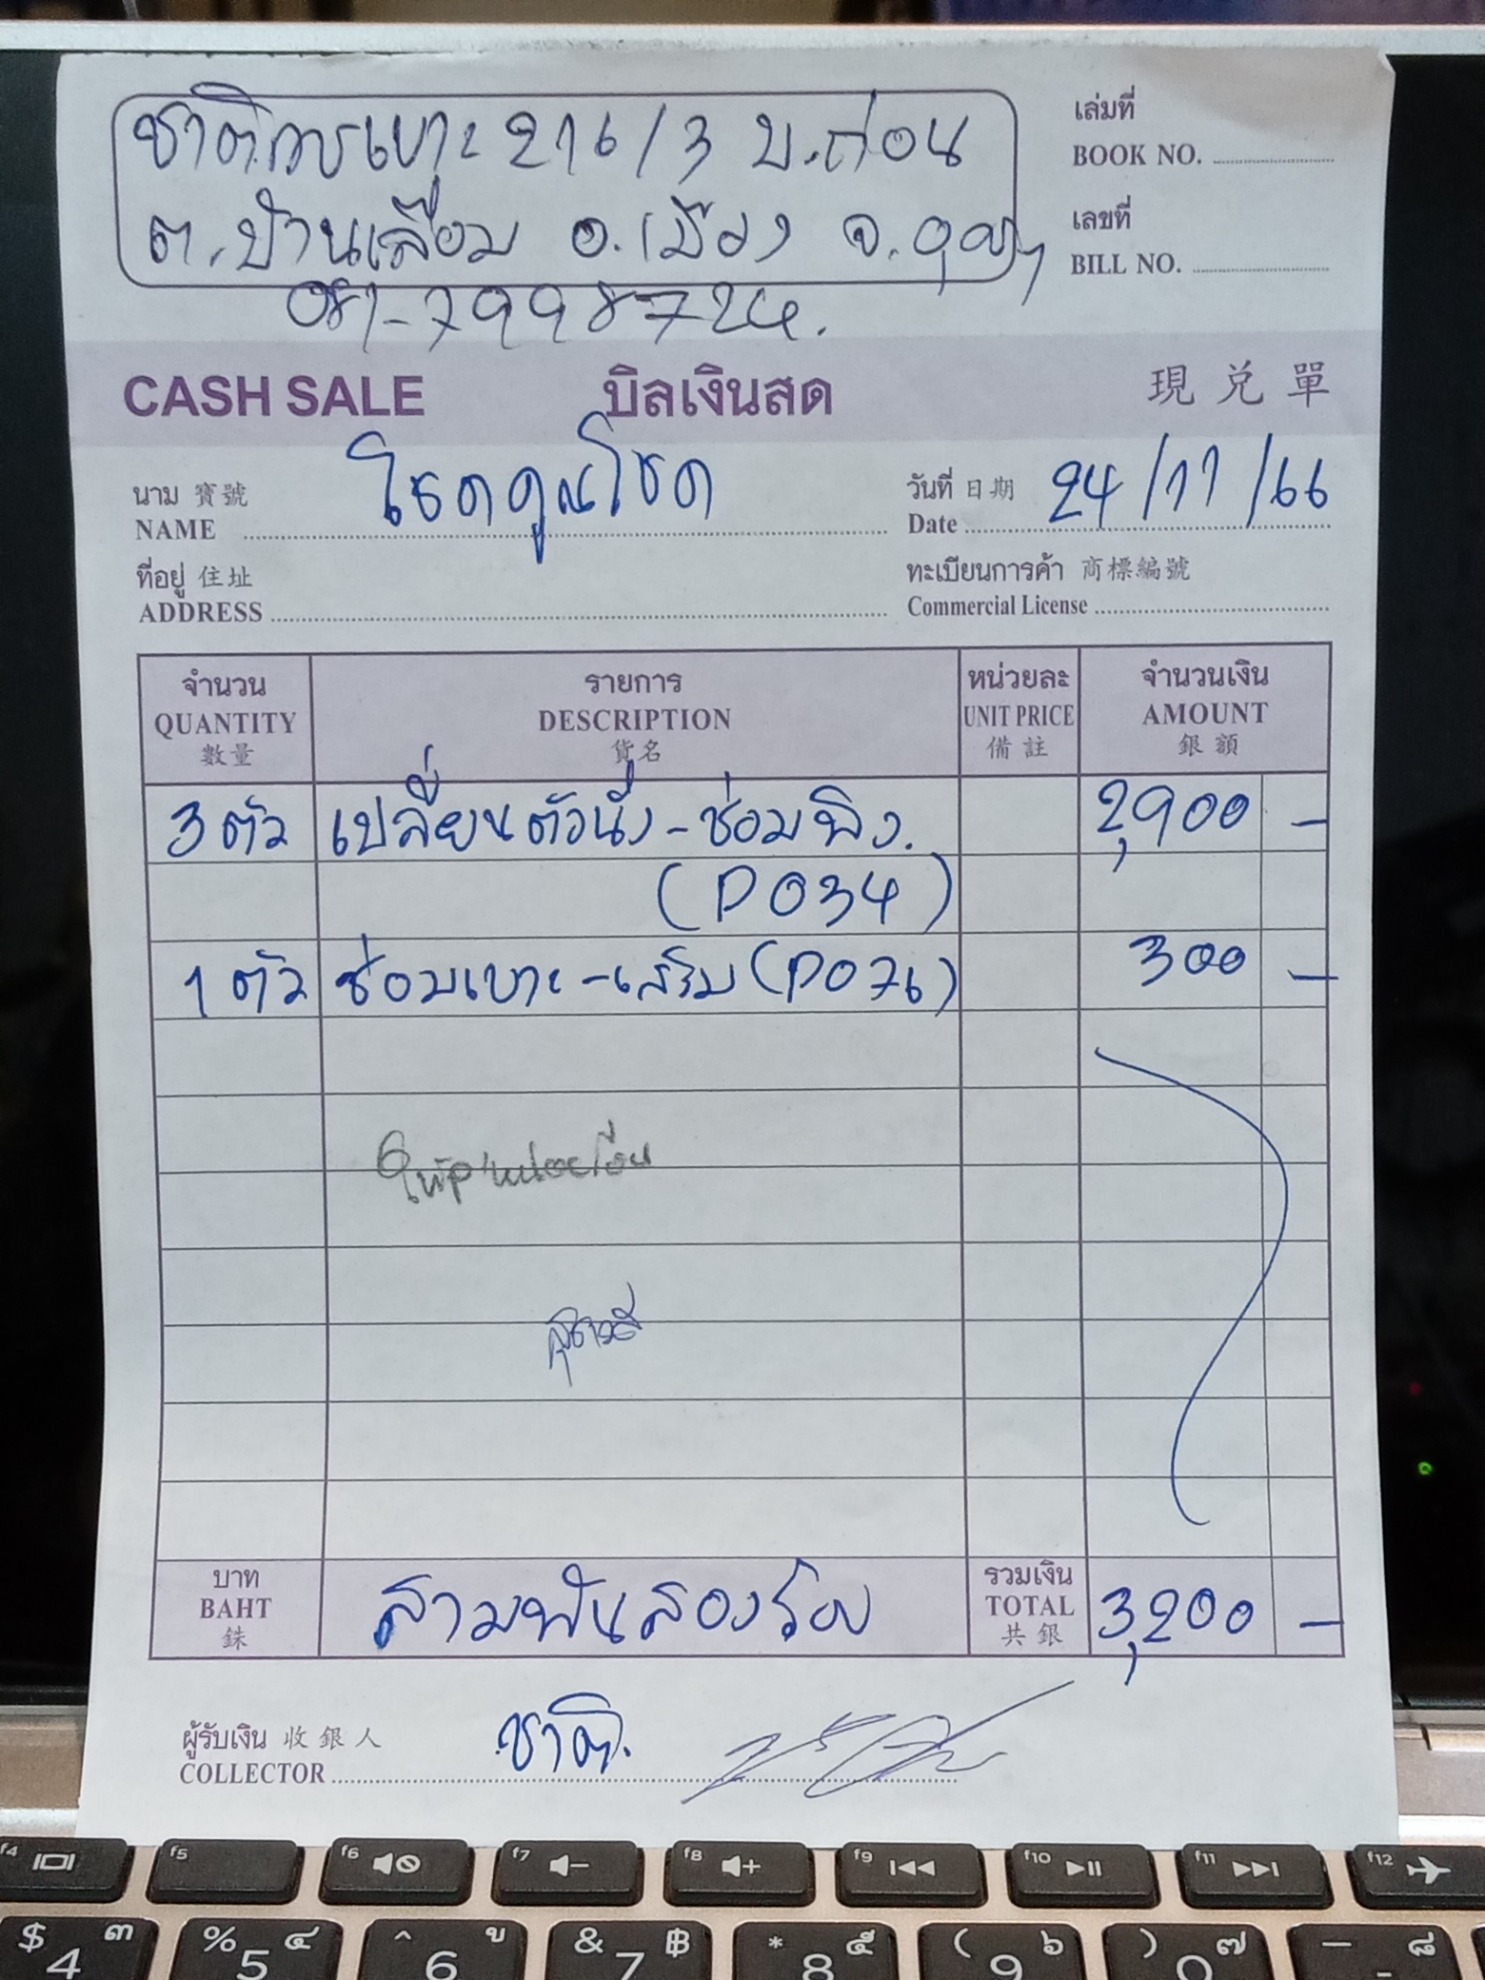 ชาติการเบาะ 216/3 บ.ถ่อน
ต.บ้านเลื่อม อ.เมือง จ.อุดรฯ
081-7998724.
เล่มที่
BOOK NO.
เลขที่
BILL NO.
CASH SALE บิลเงินสด 現兌單
นาม 寶號 โชคคูณโชค วันที่ 日期 24/11/66
NAME Date
ที่อยู่ 住址 ทะเบียนการค้า 商標編號
ADDRESS Commercial License
จำนวน รายการ หน่วยละ จำนวนเงิน
QUANTITY DESCRIPTION UNIT PRICE AMOUNT
數量 貨名 備註 銀額
3 ตัว เปลี่ยนตัวนั่ง-ซ่อมพิง. 2,900 -
(P034)
1 ตัว ซ่อมเบาะ-เสริม (P076) 300 -
สุชาวดี
บาท รวมเงิน
BAHT สามพันสองร้อย TOTAL 3,200 -
銖 共銀
ผู้รับเงิน 收銀人 ชาติ.
COLLECTOR
f4 f5 f6 f7 f8 f9 f10 f11 f12
$ ๓ % ๔ ^ ข & ฿ * ๕ ( ๖ ) ๗ — ๘
4 5 6 7 8 9 0 -